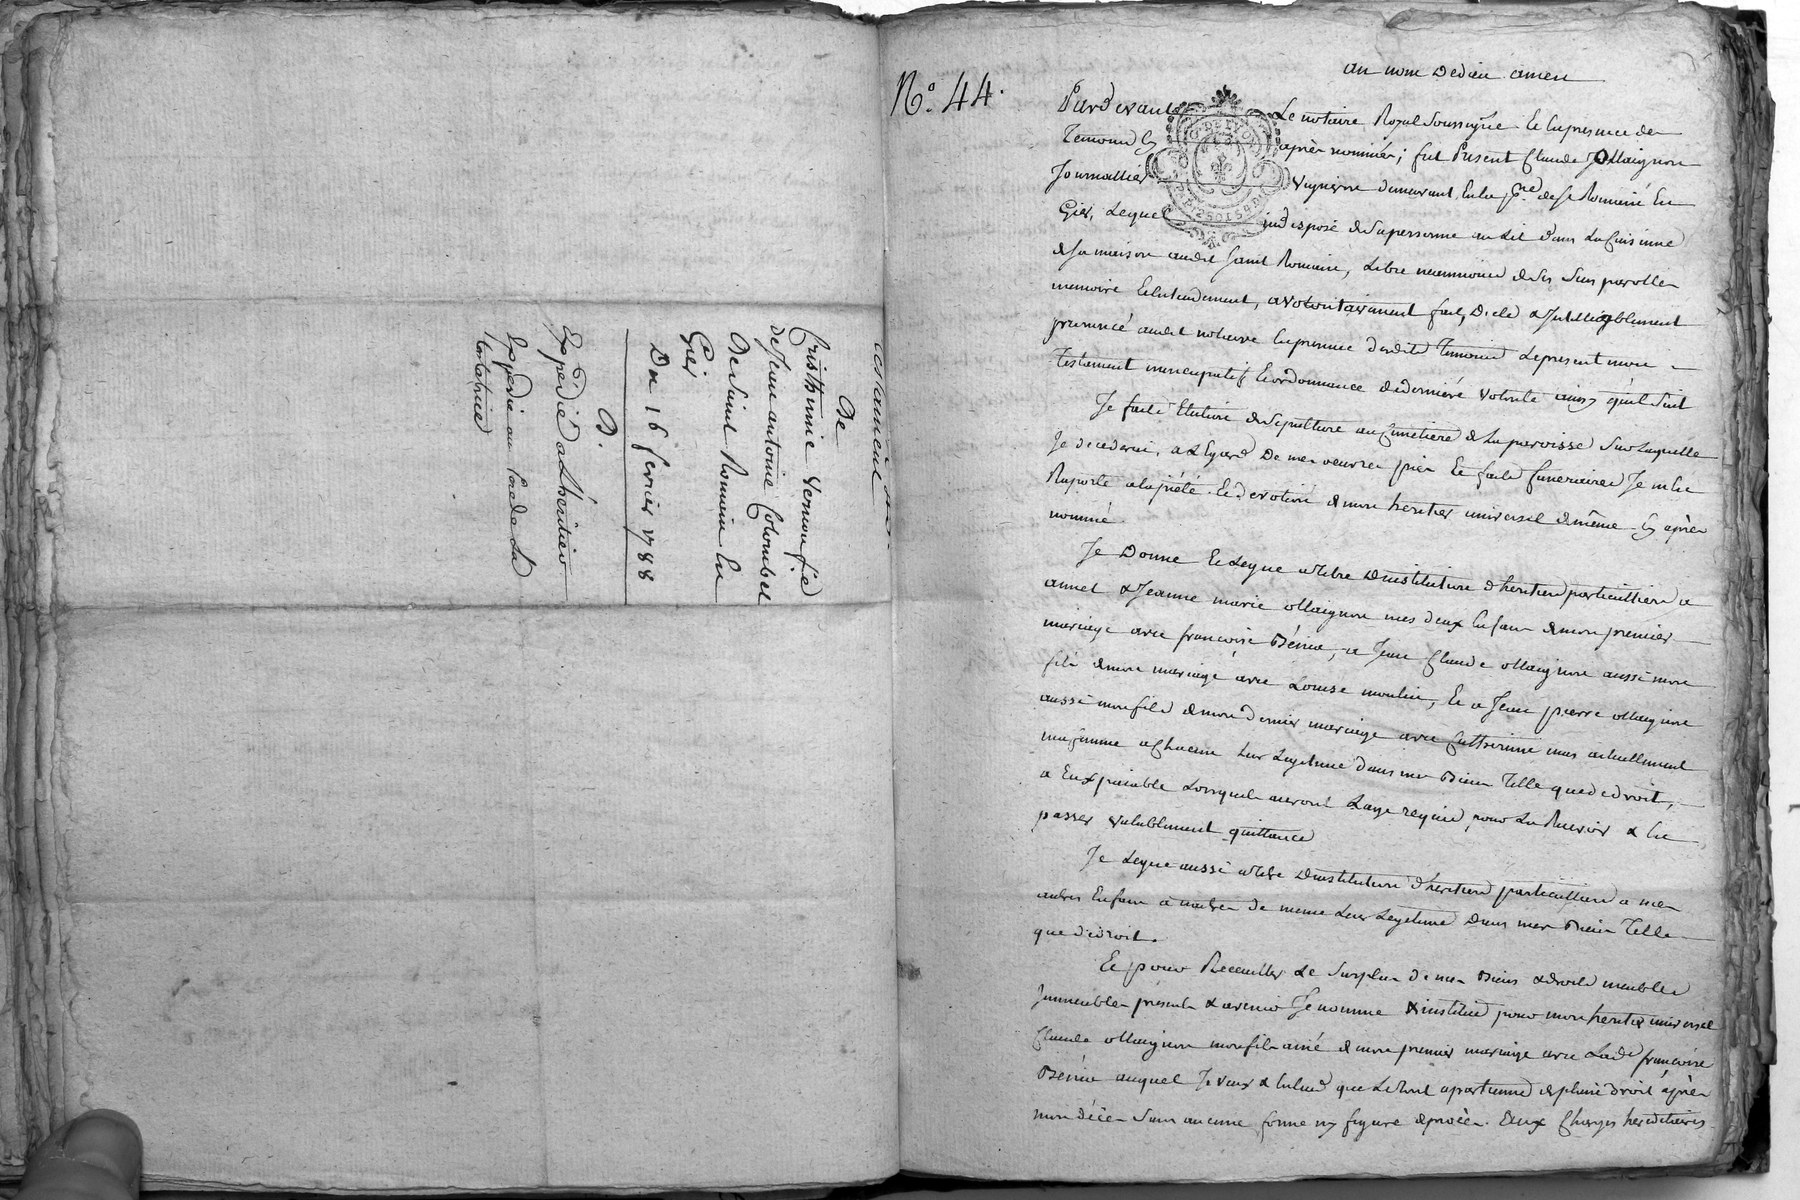 testament
De
Cristhinne vernou fe
de Jean antoine Colombel
De Saint Romain En
Gier
Du 16 fevrier 1788
D.
Expedié a L'heritier
Expedie au
Testatrice
N.o 44.
au nom de dieu amen
Pardevant Le notaire Royal Soussigné Et En presence des
Temoins Cy après nommés ; fut Present Claude Maignon
Journallier vigneron demeurant En la pse. de St Romain En
Gier, Lequel indisposé de Sa personne au Lit dans La Cuisinne
de Sa maison audit Saint Romain, Libre neammoins de Ses Sens parolle
memoire Et Entendement, a volontairement fait, Dicté & Intelligiblement
prononcé audit notaire En presence desdits Temoins Le present mon
Testament nuncupatif Et ordonnance de derniere volonté ainsy qu'il Suit
Je fait Election de Sepulture au Cimetiere de La paroisse Sur Laquelle
Je decederai, a L'Egard De mes oeuvres pies Et frais funeraires Je m'En
Raporte a la piété Et devotion de mon heritier universel de même Cy après
nommé
Je Donne Et Legue a titre D'institution d'heritiers particuilliers a
annet & Jeanne marie Maignon mes deux Enfans de mon premier
mariage avec francoise Bénier, a Jean Claude Maignon aussi mon
fils de mon mariage avec Louise moulin, Et a Jean pierre Maignon
aussi mon fils de mon dernier mariage avec Catherinne mas actuellement
ma femme a Chacun Leur Legitime dans mes Biens Telle que de droit,
a Eux paiable Lorsquils auront L'age requis pour La Recevoir & En
passer valablement quittance
Je Legue aussi a titre D'institution d'heritiers particuilliers a mes
autres Enfans a naitre de meme Leur Legitime Dans mes Biens Telle
que de droit.
Et pour Receuillir Le Surplus de mes Biens & droits meubles
Immeubles présents & avenir Je nomme & institue pour mon heritier universel
Claude Maignon mon fils ainé de mon premier mariage avec Ladte francoise
Bénier auquel Je veux & Entend que Le tout apartienne de plein droit après
mon décés Sans aucune forme ny figure de procès. Aux Charges hereditaires